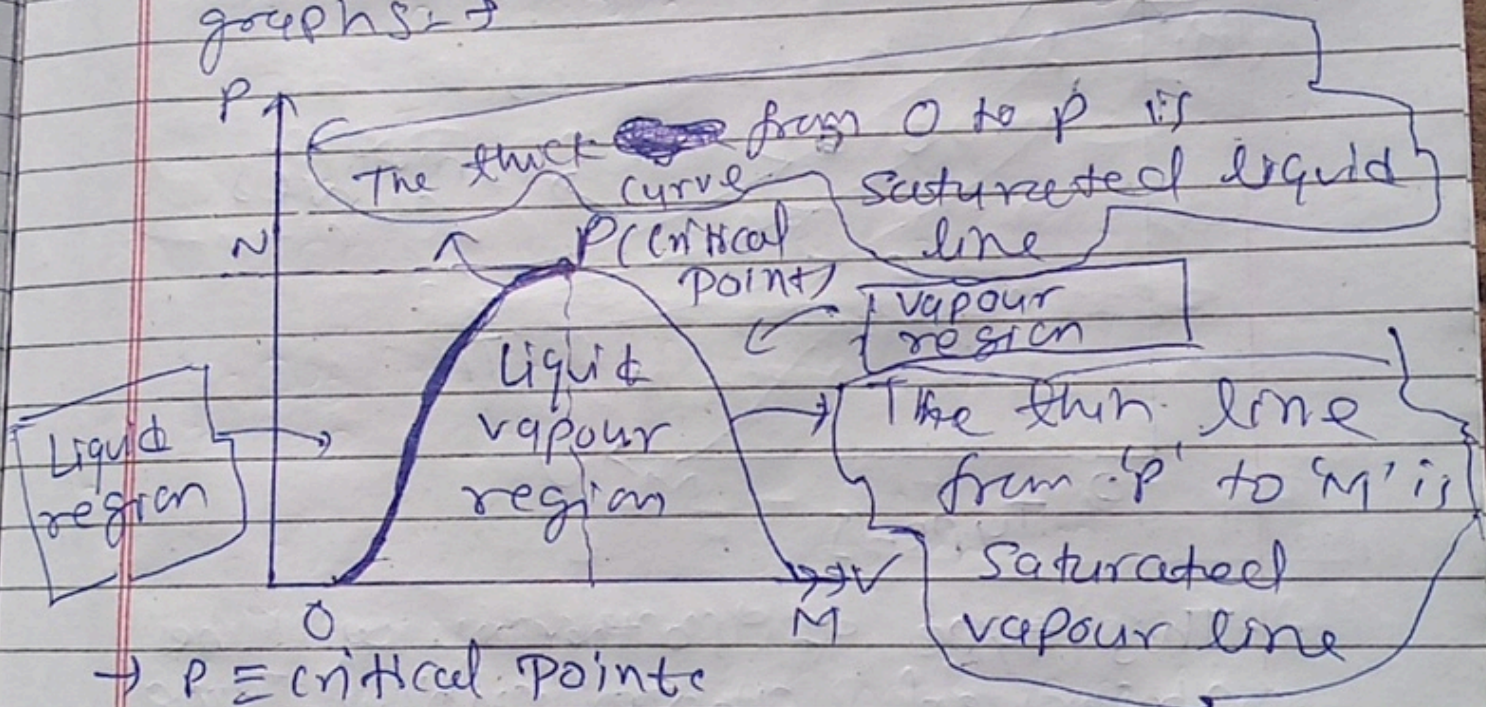 graphs:→
P
The thick from O to P is
curve saturated liquid
line
N
P (critical
point)
vapour
region
Liquid
vapour
region
Liquid
region
The thin line
from 'P' to 'M' is
saturated
vapour line
V
O
M
→ P ≡ critical point